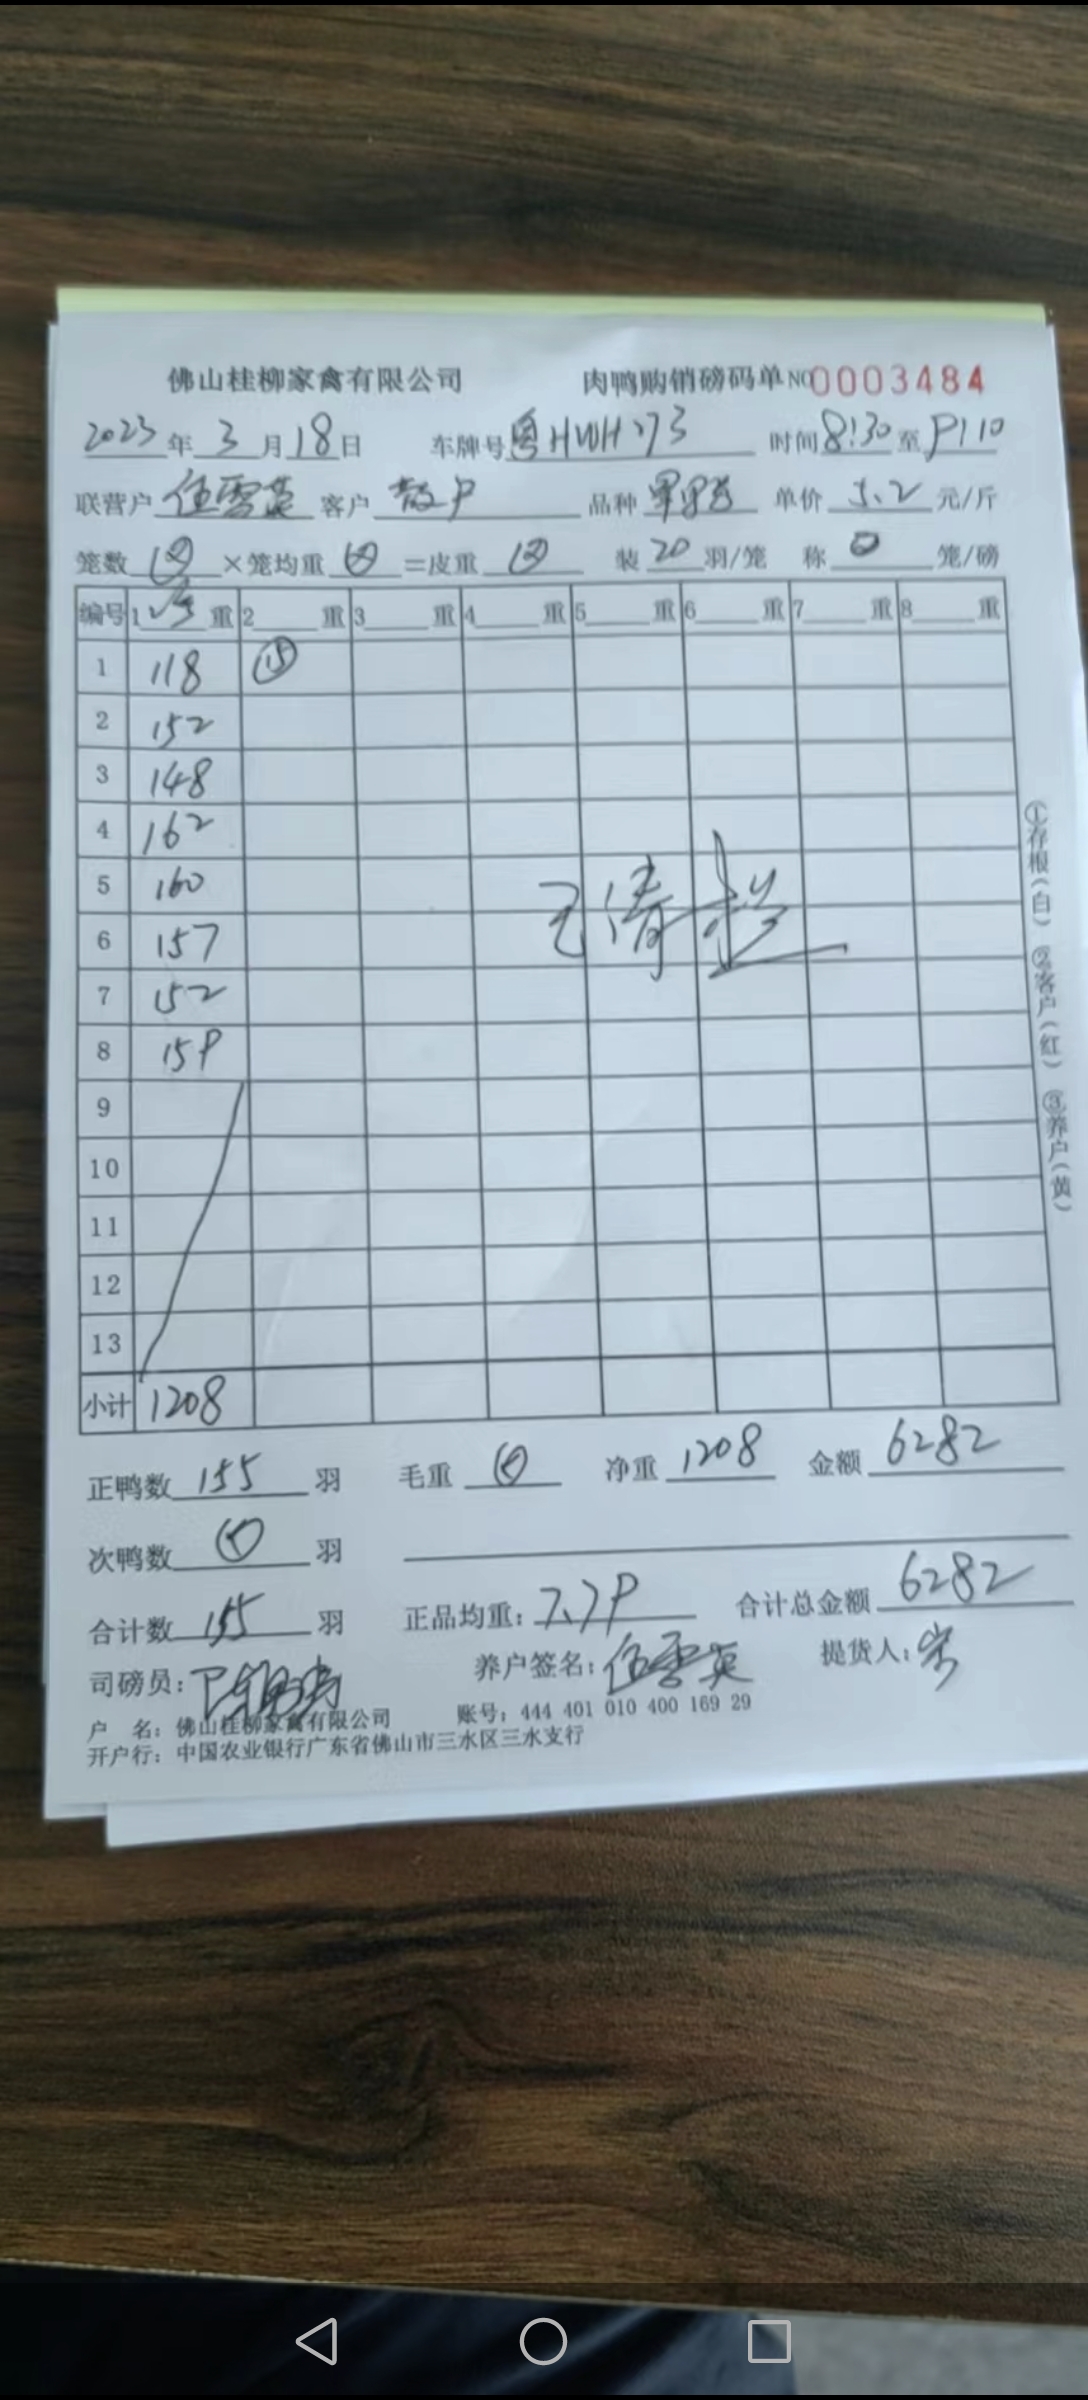 佛山桂柳家禽有限公司 肉鸭购销磅码单 NO 0003484
2023年 3 月 18 日 车牌号 粤HWH773 时间 8:30 至 9:10
联营户 伍雪英 客户 散户 品种 单价 5.2 元/斤
笼数 ×笼均重 =皮重 装 20 羽/笼 称 笼/磅
编号 1 重 2 重 3 重 4 重 5 重 6 重 7 重 8 重
1 118 ⑮
2 152
3 148
4 162
5 160
6 157
7 152
8 159
9
10
11
12
13
小计 1208
①存根(白) ②客户(红) ③养户(黄)
正鸭数 155 羽 毛重 净重 1208 金额 6282
次鸭数 羽
合计数 155 羽 正品均重: 7.79 合计总金额 6282
司磅员: 养户签名: 伍雪英 提货人: 宋
户 名: 佛山桂柳家禽有限公司 账号: 444 401 010 400 169 29
开户行: 中国农业银行广东省佛山市三水区三水支行